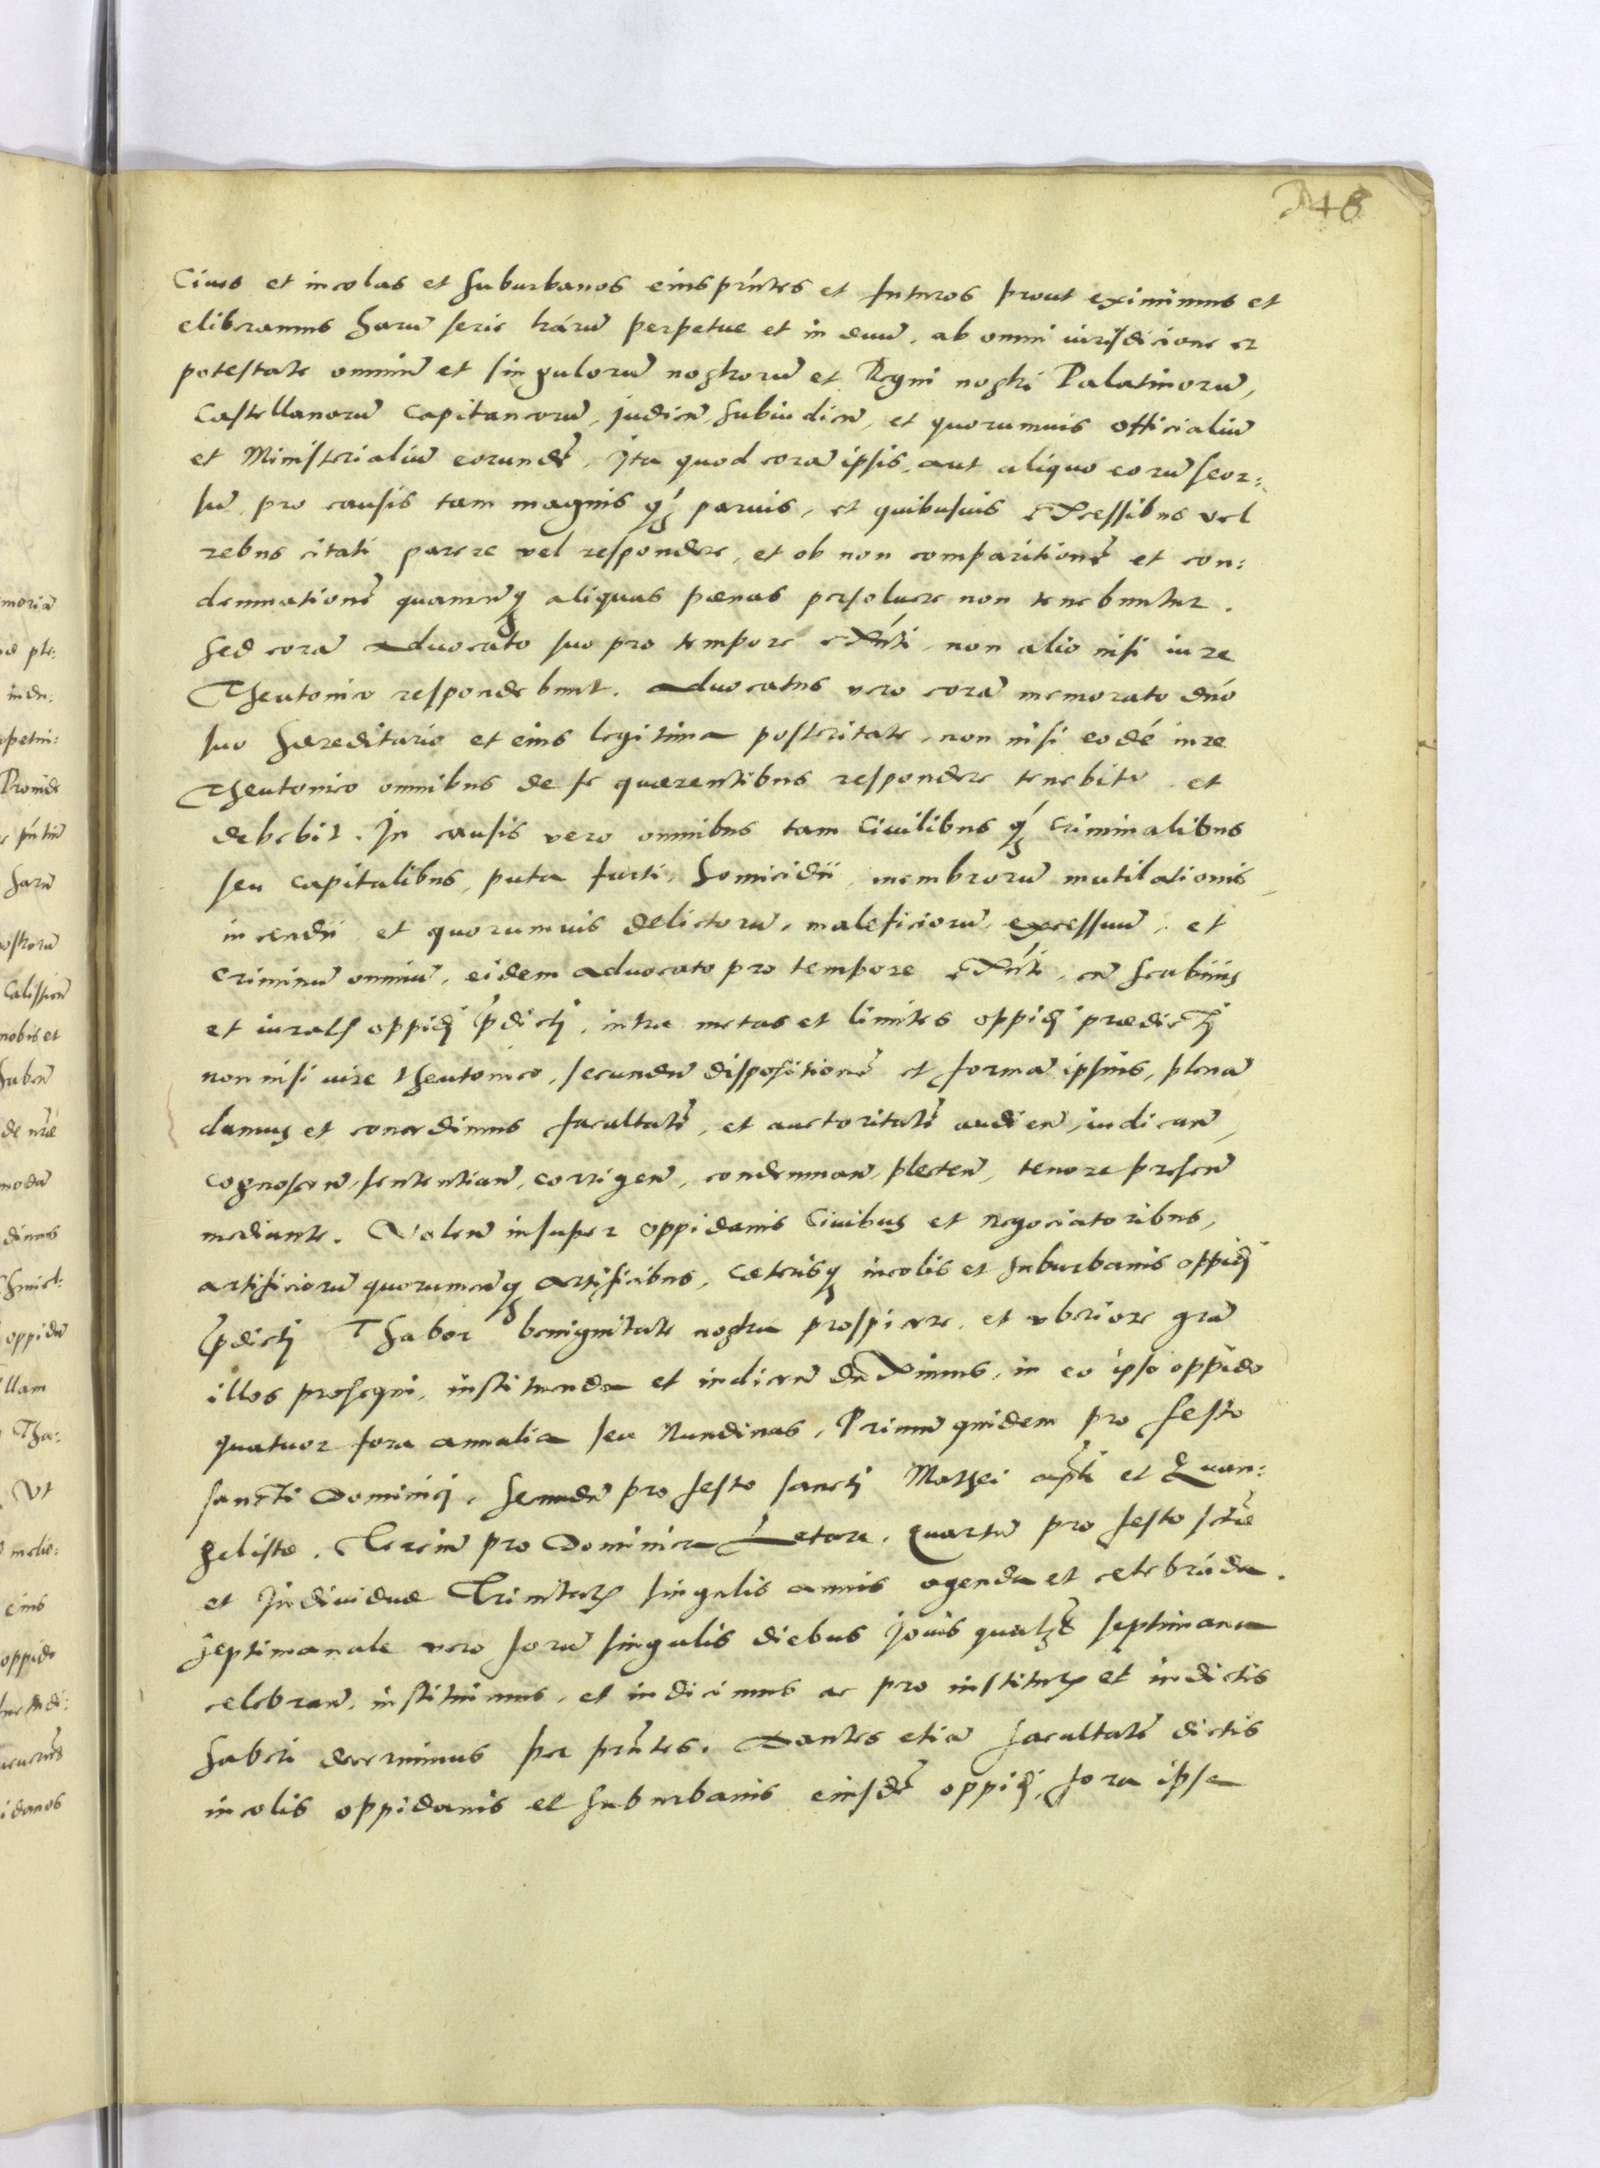 248
Ciues et incolas et suburbanos eius pr̃ntes et futuros prout eximimus et
eliberamus harũ serie lrárũ perpetue et in euũ, ab omni iurisdicione et
potestate omniũ et singulorũ nostrorũ et Regni nostri Palatinorũ,
Castellanorũ Capitaneorũ, Judicũ, subiudicũ, et quorumuis officialiũ
et Ministerialiũ eorundẽ, Ita quod corã ipsis, aut aliquo eorũ seor:
sũ, pro causis tam magnis q̃ꝫ paruis, et quibusuis excessibus vel
rebus citati parere vel respondere, et ob non comparitionẽ et con:
demnationẽ quamcũqꝫ aliquas pœnas persoluere non tenebuntur.
Sed corã aduocato suo pro tempore exñti non alio nisi iure
Theutonico respondebunt. Aduocatus vero corã memorato dño
suo hæreditario et eius legitima posteritate, non nisi eodẽ iure
Theutonico omnibus de se quærentibus respondere tenebitr et
debebit. In causis vero omnibus tam Ciuilibus q̃ꝫ Criminalibus
seu capitalibus, puta furti, homicidii, membrorũ mutilationis,
incendii et quorumuis delictorũ, maleficiorũ, excessuũ, et
criminũ omniũ, eidem aduocato pro tempore exñti, cũ scabinis
et iuratꝭ oppidi p̃dicti, intra metas et limites oppidi prædicti
non nisi iure theutonico, secundũ dispositionẽ et formã ipsius, plenã
damus et concedimus facultatẽ, et auctoritatẽ audieñ, iudicañ,
cognosceñ, sententiañ, corrigeñ, condemnañ, plecteñ, tenore preseñ
mediante. Voleñ insuper oppidanis Ciuibus et negociatoribus,
artificiorũ quorumcũqꝫ artificibus, cæterisqꝫ incolis et suburbanis oppidi
p̃dicti Thabor benignitate nostra prospicere, et vberiore grã
illos prosequi, instituenda et indiceñ duximus, in eo ipso oppido
quatuor fora annalia seu Nundinas, Primũ quidem pro festo
sancti Dominici, secundũ pro festo sancti Mathei apli et Euan:
gelistæ. Terciũ pro Dominica Letare, quartũ pro festo sctæ
et Indiuiduæ Trinitatꝭ singulis annis agenda et celebrãda.
Septimanale vero forũ singulis diebus Jouis qualꝫt septimana
celebrañ, instituimus, et indicimus ac pro institutꝭ et indictis
haberi decernimus per pr̃ntes. Dantes etiã facultatẽ dictis
incolis oppidanis et suburbanis eiusdẽ oppidi, fora ipsa